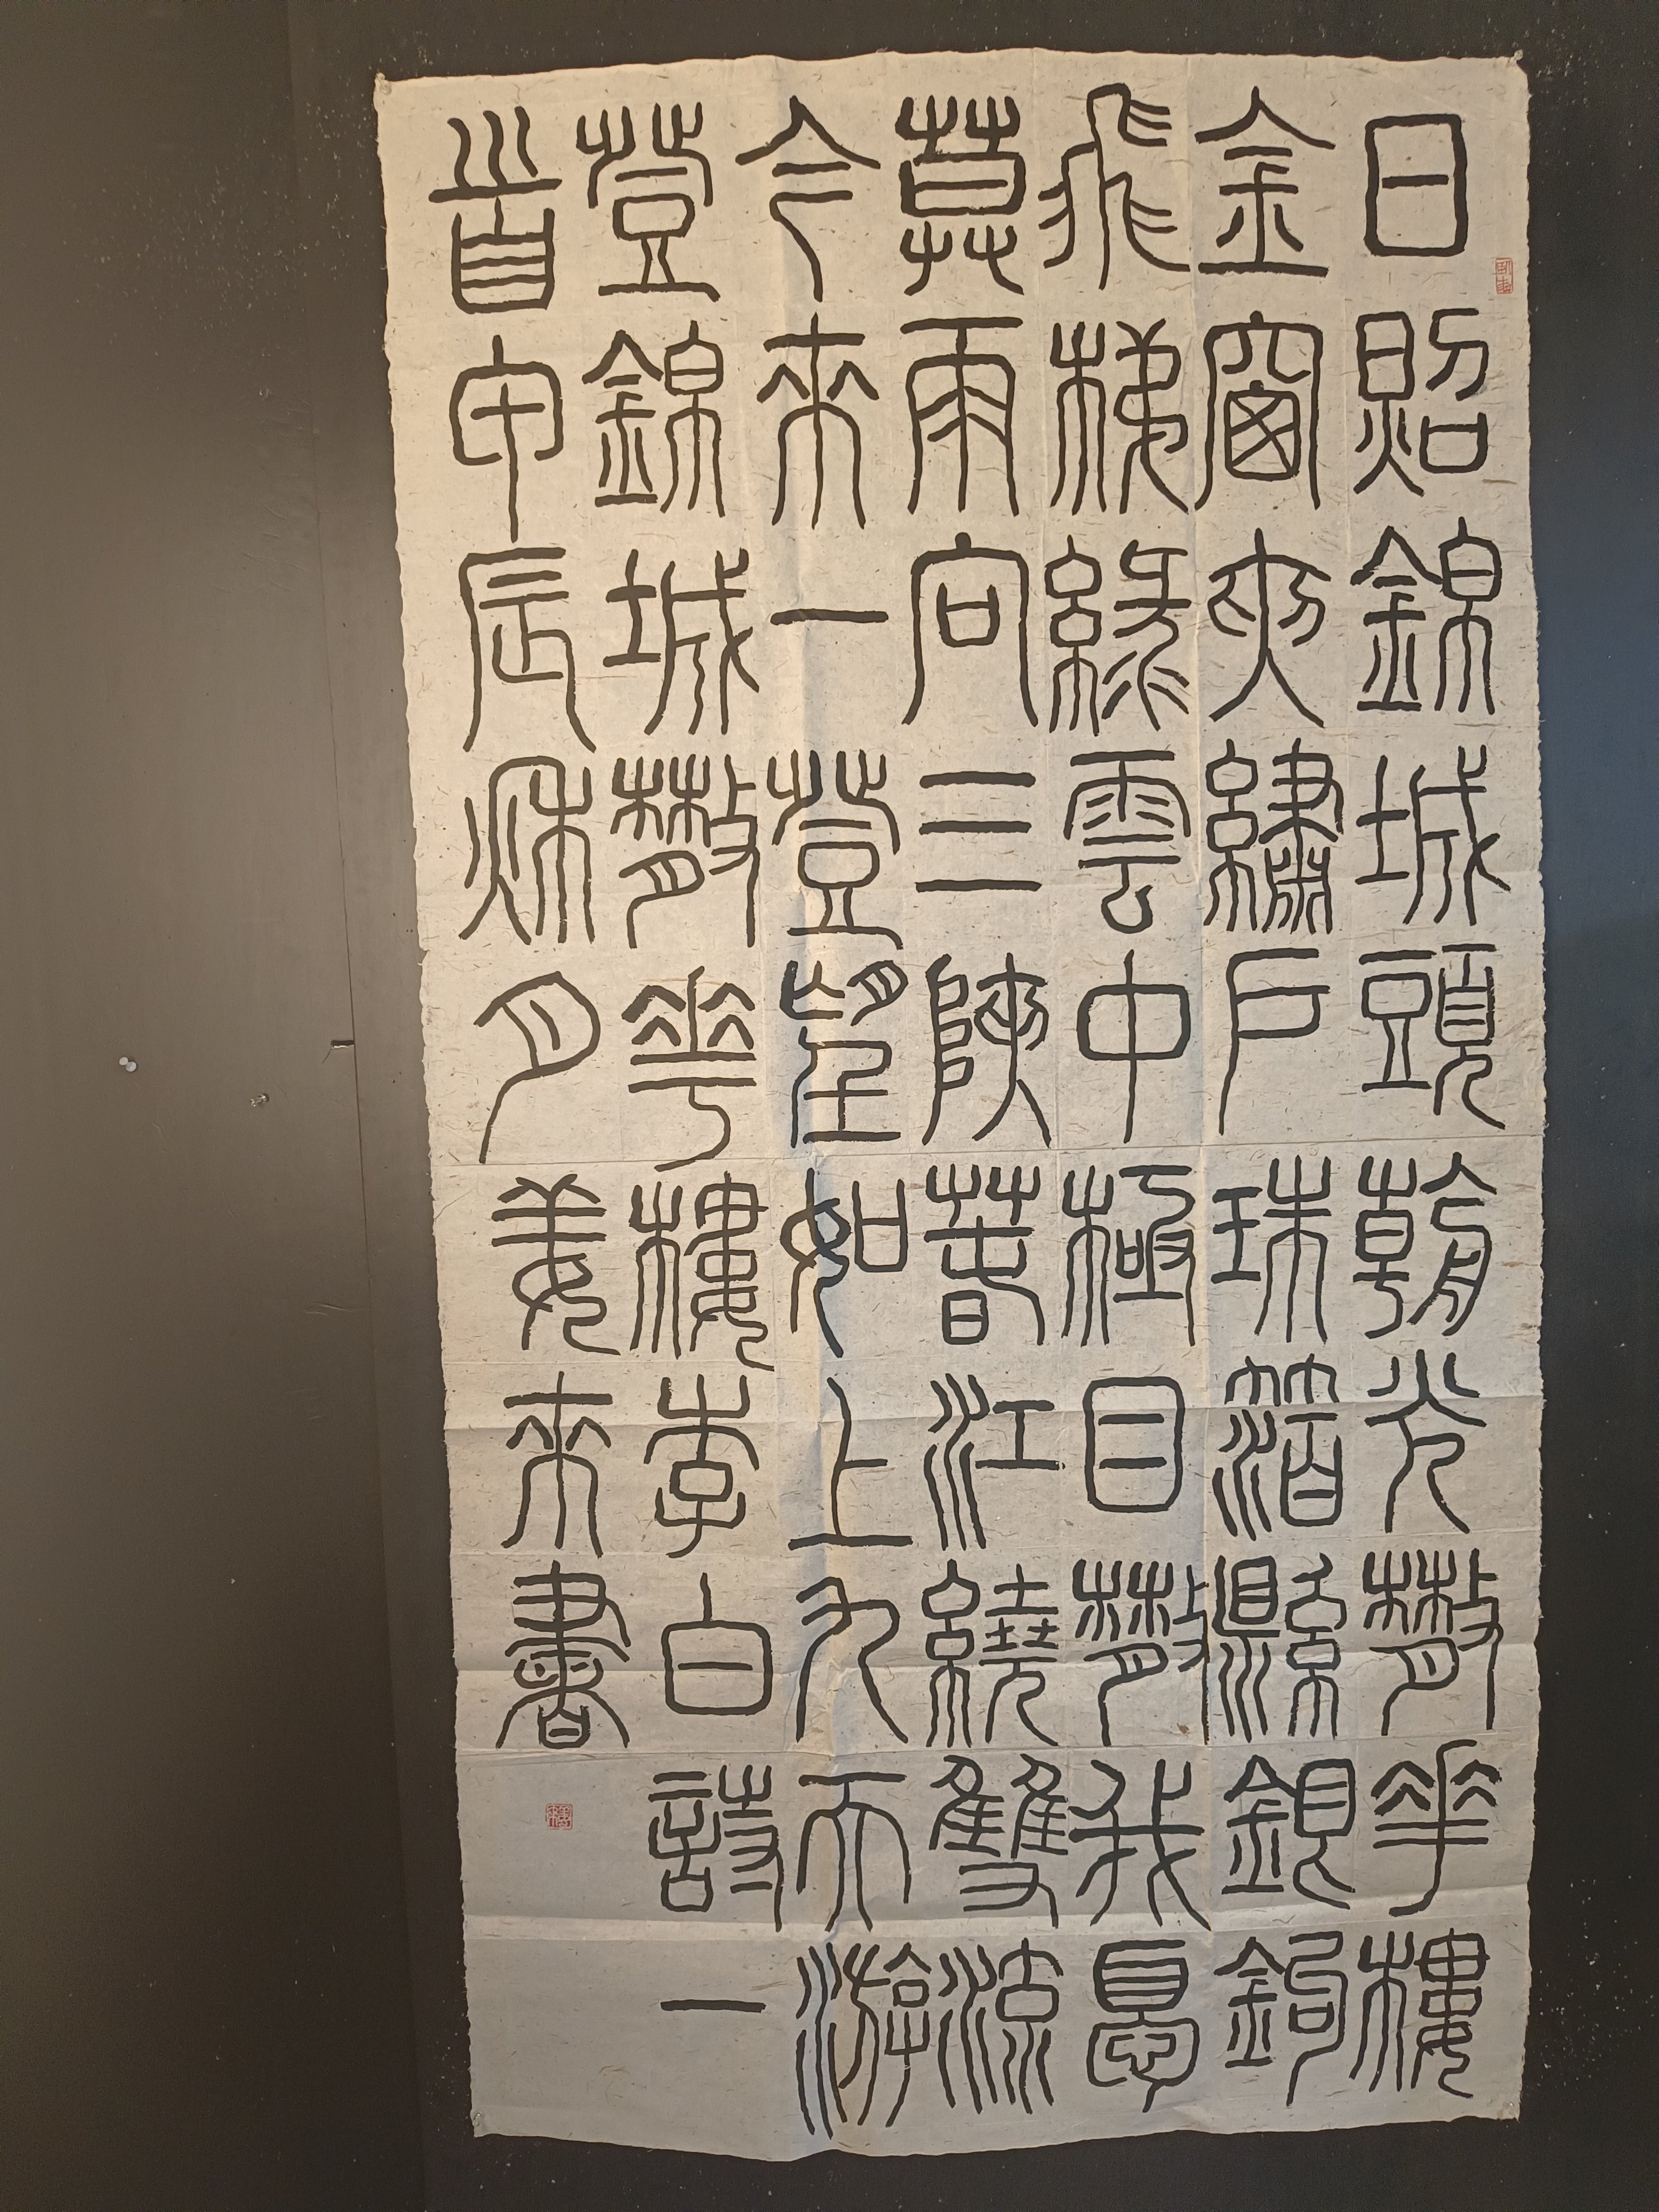 日照錦城頭朝光散花樓
金窗夾繡戶珠箔懸銀鉤
飛梯綠雲中極目散我憂
莫雨向三陜春江繞雙流
今來一登望如上九天游
登錦城散花樓李白詩一
首甲辰秋月姜來書